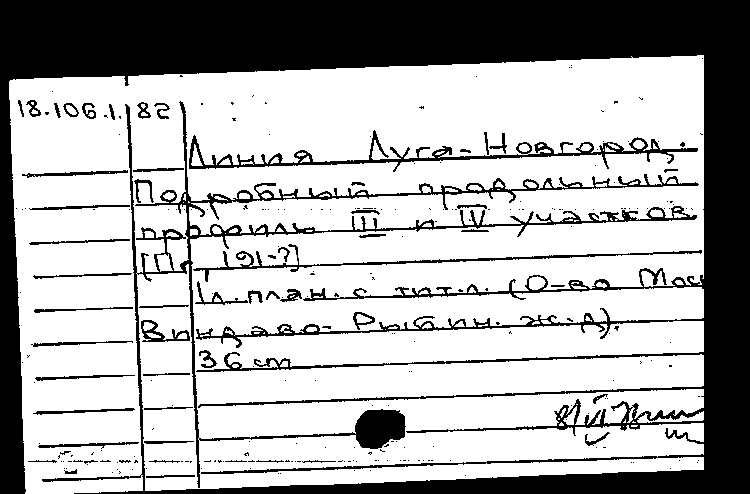 18.106.1. 82
Линия Луга-Новгород.
Подробный продольный
профиль III и IV участков
[Пг, 191-?]
1 л. план. с тит. л. (О-во Мос
Виндаво-Рыбин. ж.д).
36 cm